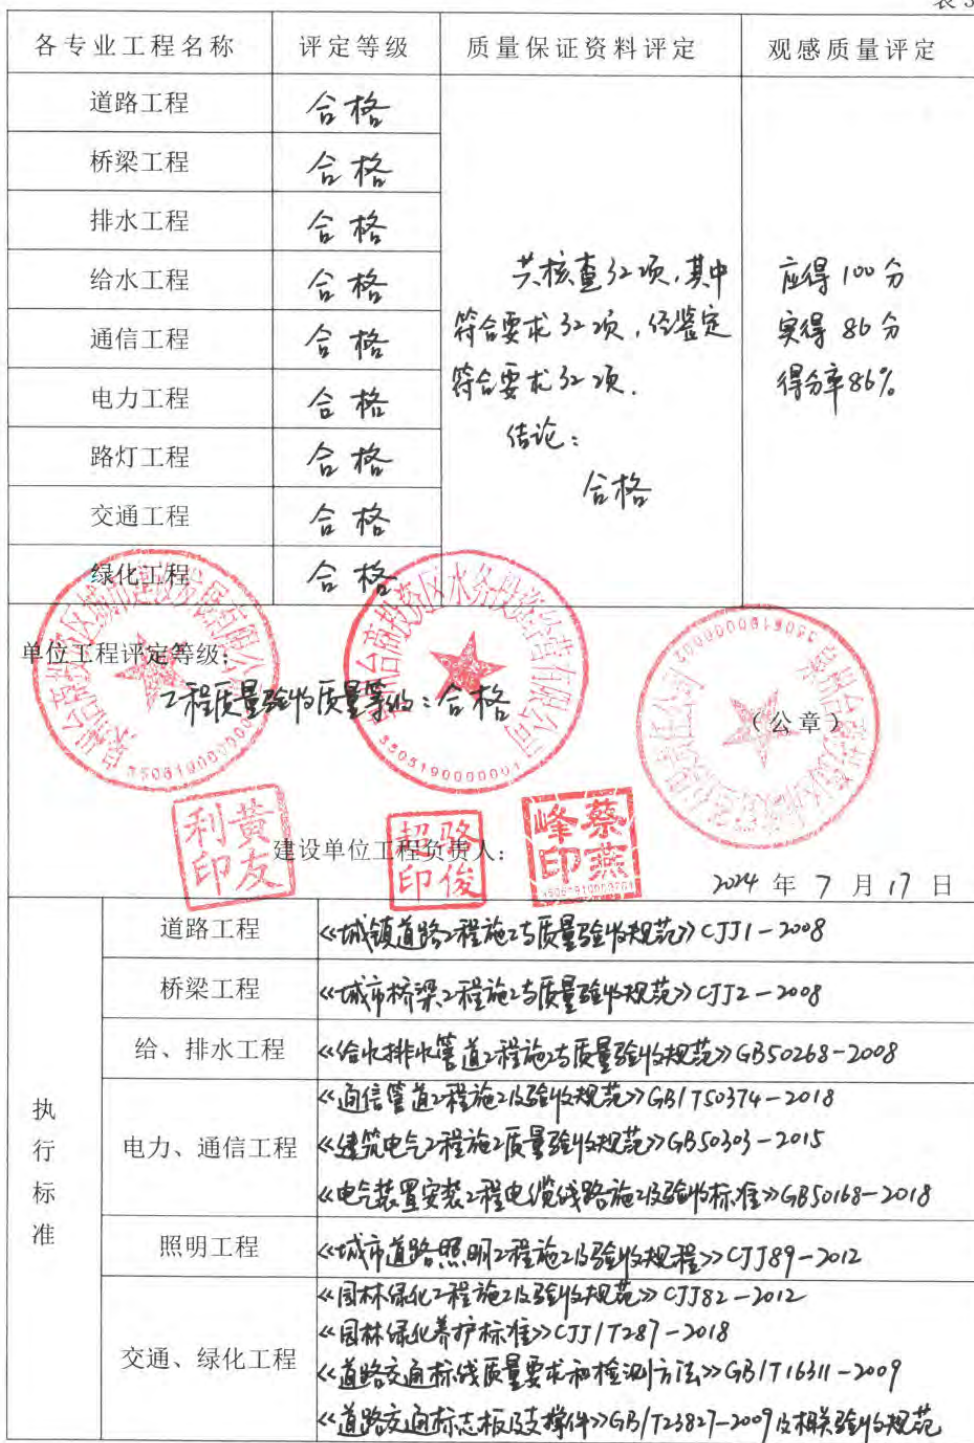 表3
各专业工程名称 评定等级 质量保证资料评定 观感质量评定
道路工程 合格
桥梁工程 合格
排水工程 合格
给水工程 合格
通信工程 合格
电力工程 合格
路灯工程 合格
交通工程 合格
绿化工程 合格
共核查32项,其中
符合要求32项,经鉴定
符合要求32项.
结论:
合格
应得100分
实得86分
得分率86%
单位工程评定等级:
工程质量验收质量等级:合格
(公章)
黄友利印
骆俊超印
蔡燕峰印
建设单位工程负责人:
2024年7月17日
执行标准
道路工程 《城镇道路工程施工与质量验收规范》CJJ1-2008
桥梁工程 《城市桥梁工程施工与质量验收规范》CJJ2-2008
给、排水工程 《给水排水管道工程施工与质量验收规范》GB50268-2008
电力、通信工程 《通信管道工程施工及验收规范》GB/T50374-2018
《建筑电气工程施工质量验收规范》GB50303-2015
《电气装置安装工程电缆线路施工及验收标准》GB50168-2018
照明工程 《城市道路照明工程施工及验收规程》CJJ89-2012
交通、绿化工程 《园林绿化工程施工及验收规范》CJJ82-2012
《园林绿化养护标准》CJJ/T287-2018
《道路交通标线质量要求和检测方法》GB/T16311-2009
《道路交通标志板及支撑件》GB/T23827-2009及相关验收规范